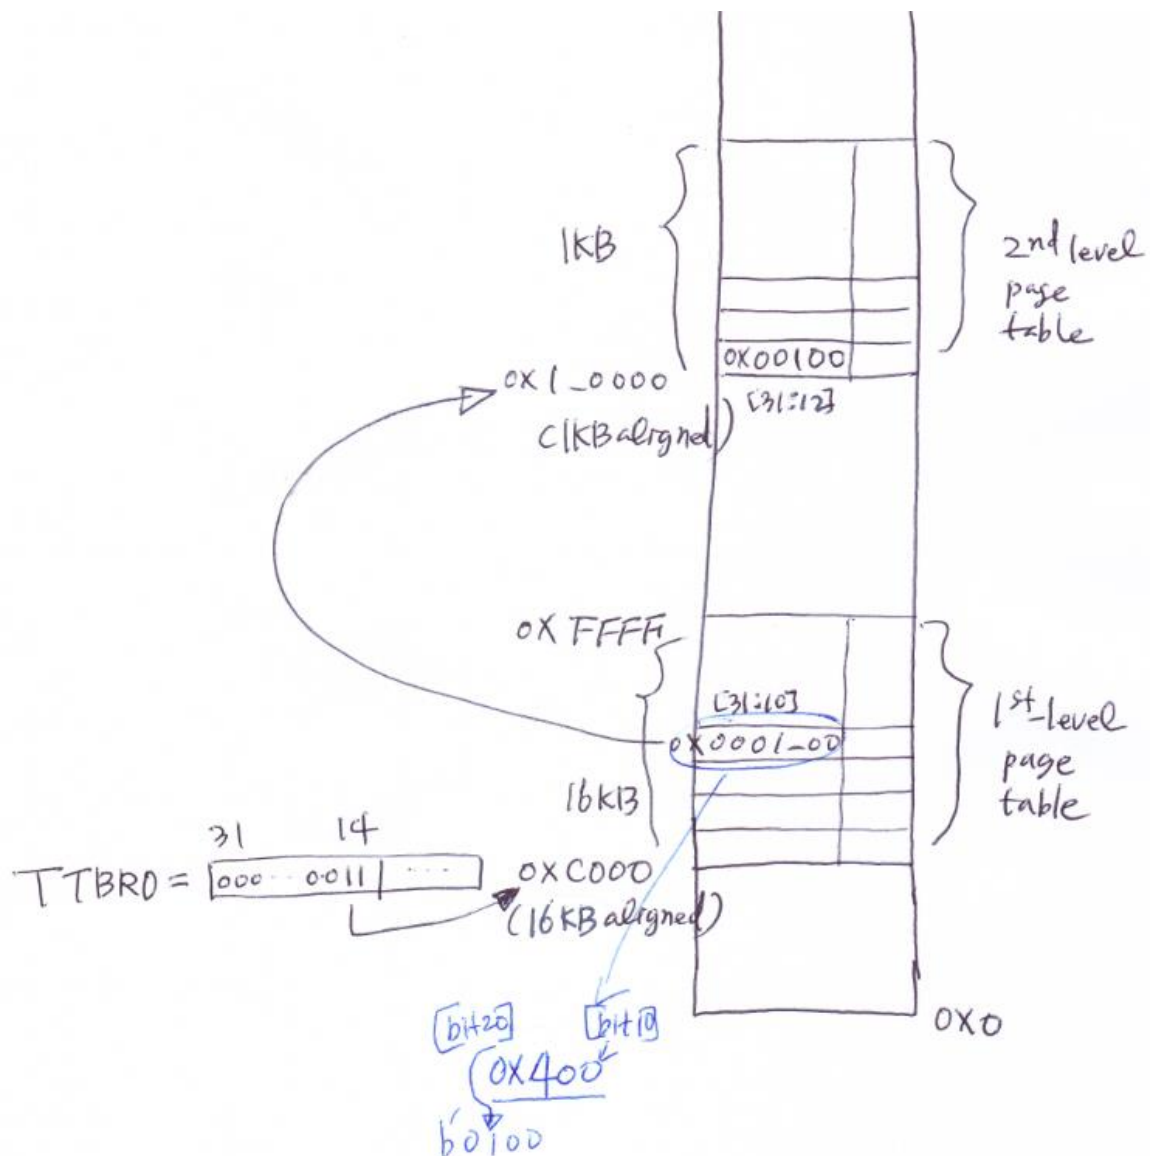 1KB
2nd level
page
table
0X00100
0X1_0000
[31:12]
(1KB aligned)
0X FFFF
[31:10]
0X0001_00
1st-level
page
table
16KB
31 14
TTBR0 = 000 ... 0011 ...
0XC000
(16KB aligned)
0X0
[bit20] [bit10]
0X400
b'0100